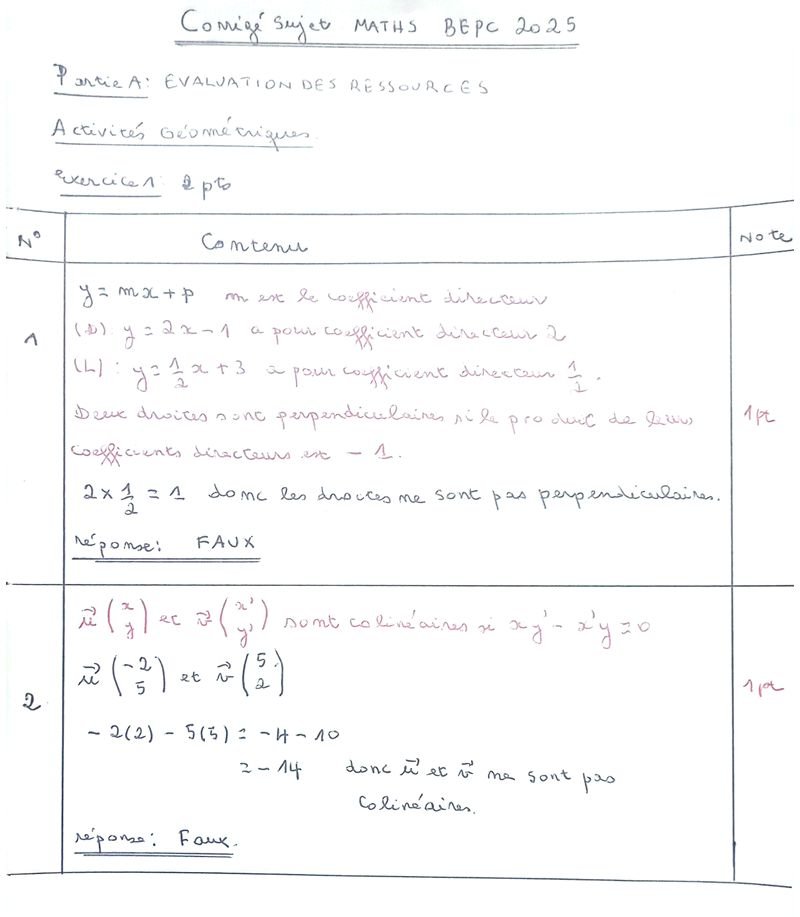 Corrigé sujet MATHS BEPC 2025
Partie A: EVALUATION DES RESSOURCES
Activités Géométriques.
Exercice 1: 2 pts
N° Contenu Note
1
y = mx + p m est le coefficient directeur
(D): y = 2x - 1 a pour coefficient directeur 2
(L): y = 1/2 x + 3 a pour coefficient directeur 1/2.
Deux droites sont perpendiculaires si le produit de leurs
coefficients directeurs est - 1.
2 × 1/2 = 1 donc les droites ne sont pas perpendiculaires.
réponse: FAUX
1pt
2
u⃗ (x y) et v⃗ (x' y') sont colinéaires si xy' - x'y = 0
u⃗ (-2 5) et v⃗ (5 2)
- 2(2) - 5(5) = -4 - 10
= - 14 donc u⃗ et v⃗ ne sont pas
colinéaires.
réponse: Faux.
1pt